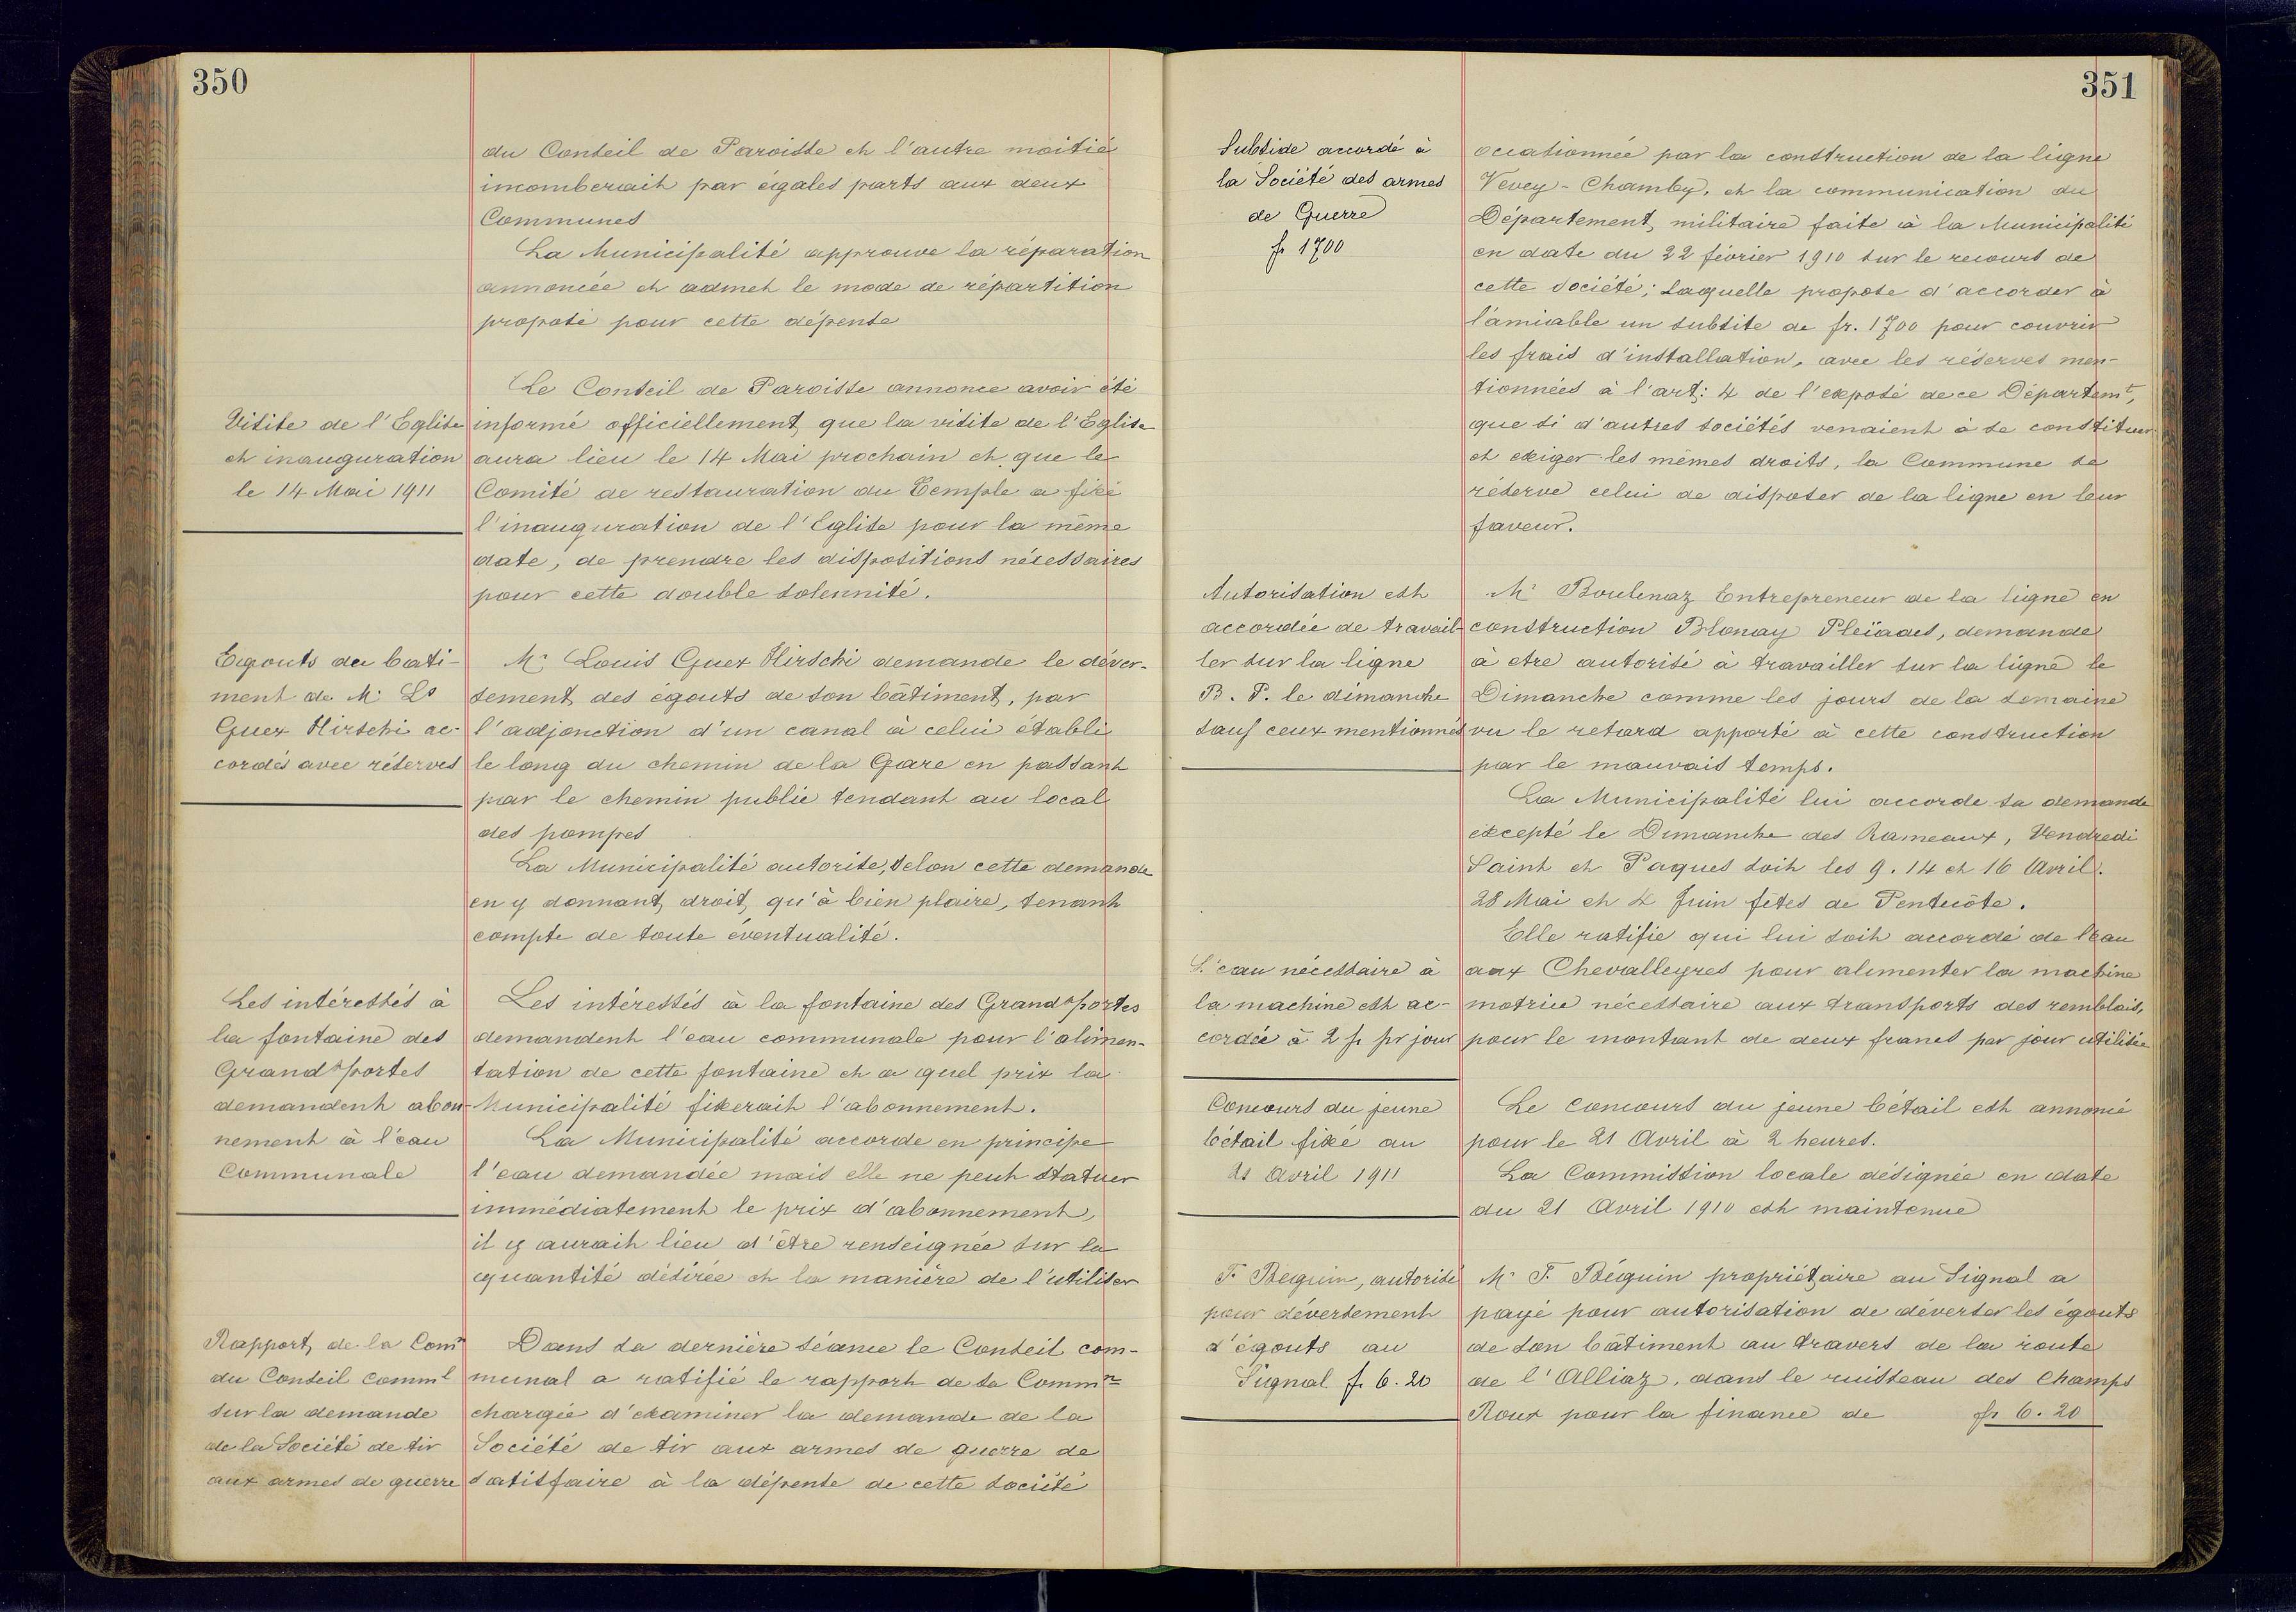 350
du Conseil de Paroisse et l'autre moitié
incomberait par égales parts aux deux
Communes
La Municipalité approuve la réparation
annoncée et admet le mode de répartition
proposé pour cette dépense
Le Conseil de Paroisse annonce avoir été
Visite de l'Eglise
et inauguration
le 14 Mai 1911
informé officiellement que la visite de l'Eglise
aura lieu le 14 Mai prochain et que le
Comité de restauration du Temple a fixé
l'inauguration de l'Eglise pour la même
date, de prendre les dispositions nécessaires
pour cette double solennité.
Egouts du bati-
ment de Mr Ls
Guex Hirschi ac-
cordés avec réserves
Mr Louis Guex Hirschi demande le déver-
sement des égouts de son bâtiment, par
l'adjonction d'un canal à celui établi
le long du chemin de la Gare en passant
par le chemin public tendant au local
des pompes
La Municipalité autorise, selon cette demande
en y donnant droit qu'à bien plaire, tenant
compte de toute éventualité.
Les intéressés à
la fontaine des
Grands portes
demandent abon-
nement à l'eau
Communale
Les intéressés à la fontaine des Grands portes
demandent l'eau communale pour l'alimen-
tation de cette fontaine et a quel prix la
Municipalité fixerait l'abonnement.
La Municipalité accorde en principe
l'eau demandée mais elle ne peut statuer
immédiatement le prix d'abonnement,
il y aurait lieu d'être renseignée sur la
quantité désirée et la manière de l'utiliser
Rapport de la Comn
du Conseil comml
sur la demande
de la Société de tir
aux armes de guerre
Dans sa dernière séance le Conseil com-
munal a ratifié le rapport de sa Commn
chargée d'examiner la demande de la
Société de tir aux armes de guerre de
satisfaire à la dépense de cette société
351
Subside accordé à
la Société des armes
de Guerre
fr 1700
occasionnée par la construction de la ligne
Vevey-Chamby, et la communication du
Département militaire faite à la Municipalité
en date du 22 février 1910 sur le recours de
cette société; laquelle propose d'accorder à
l'amiable un subsite de fr. 1700 pour couvrir
les frais d'installation, avec les réserves men-
tionnées à l'art: 4 de l'exposé de ce Département,
que si d'autres sociétés venaient à se constituer
et exiger les mêmes droits, la Commune se
réserve celui de disposer de la ligne en leur
faveur.
Autorisation est
accordée de travail-
ler sur la ligne
B. P. le dimanche
sauf ceux mentionnés
Mr Boulenaz Entrepreneur de la ligne en
construction Blonay Pleïades, demande
à etre autorisé à travailler sur la ligne le
Dimanche comme les jours de la semaine
vu le retard apporté à cette construction
par le mauvais temps.
La Municipalité lui accorde sa demande
excepté le Dimanche des Rameaux, Vendredi
Saint et Paques soit les 9. 14 et 16 Avril.
28 Mai et 4 Juin fêtes de Pentecôte.
L'eau nécessaire à
la machine est ac-
cordée à 2 fr pr jour
Elle ratifie qui lui soit accordé de l'eau
aux Chevalleyres pour alimenter la machine
motrice nécessaire aux transports des remblais,
pour le montant de deux francs par jour utilisée
Concours du jeune
bétail fixé au
21 Avril 1911
Le concours du jeune bétail est annoncé
pour le 21 Avril à 2 heures.
La Commission locale désignée en date
du 21 Avril 1910 est maintenue
F. Beguin, autorisé
pour déversement
d'égouts au
Signal fr. 6.20
Mr F. Béguin propriétaire au Signal a
payé pour autorisation de déverser les égouts
de son bâtiment au travers de la route
de l'Alliaz, dans le ruisseau des Champs
Roux pour la finance de fr 6.20